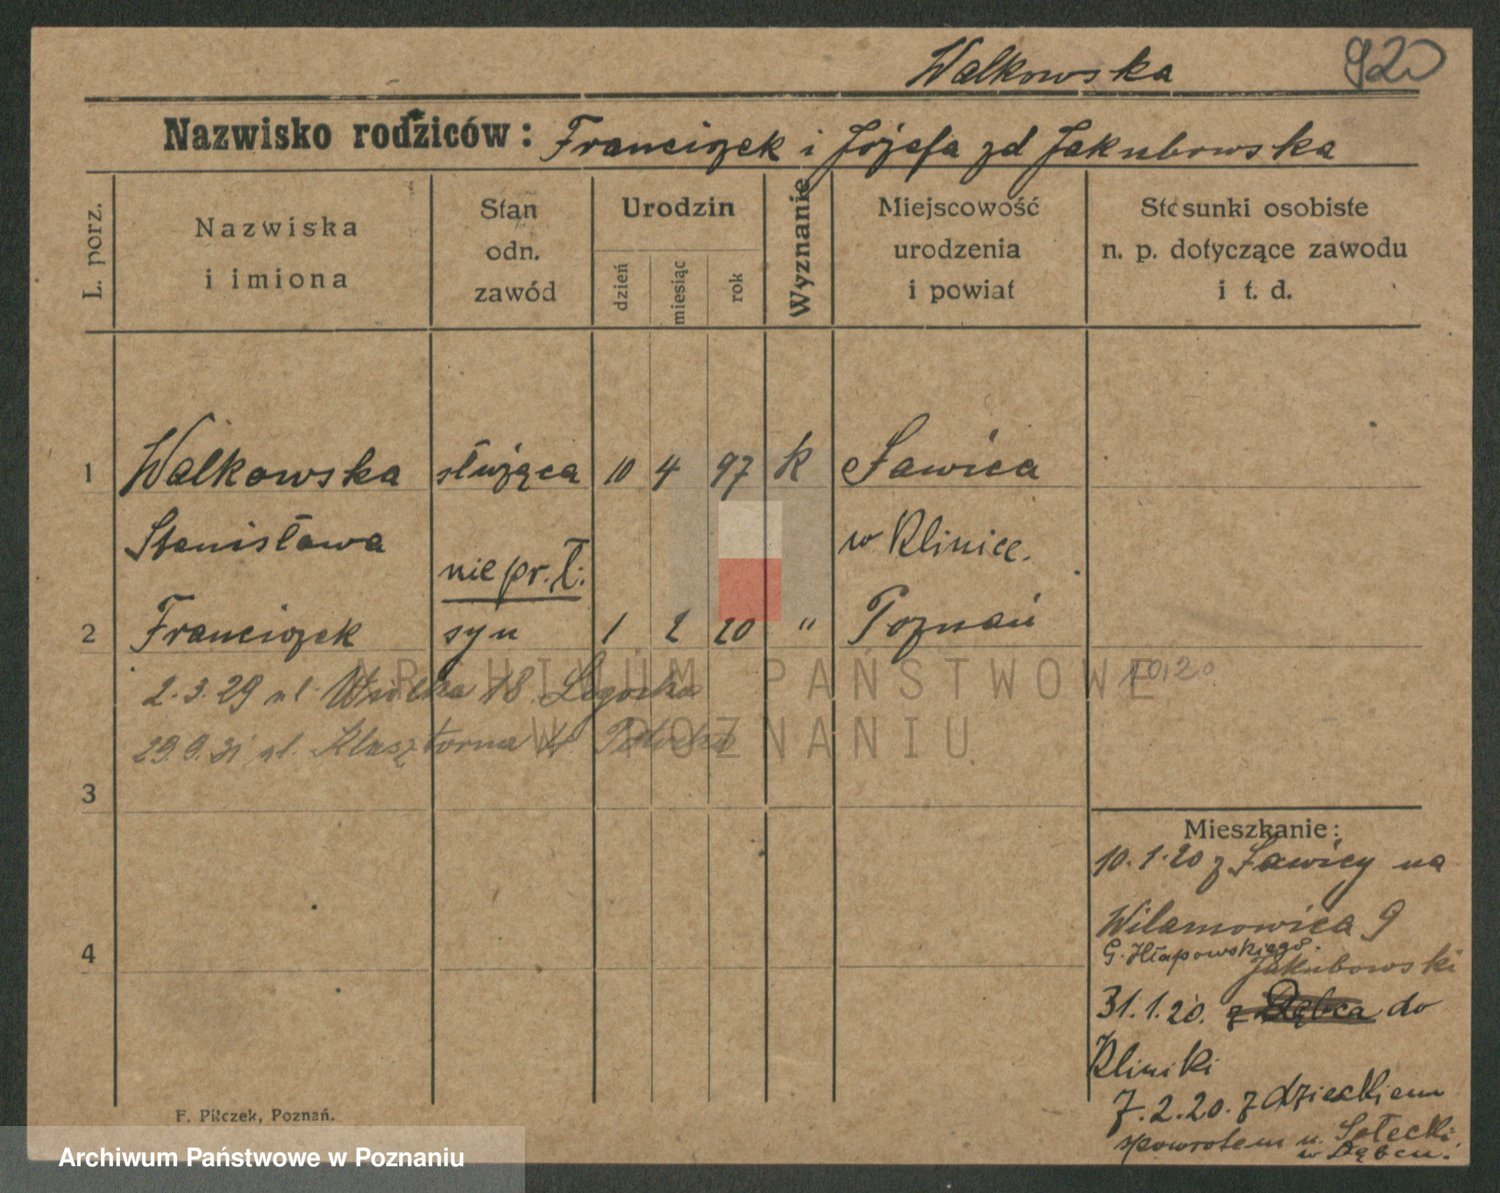 Walkowska 920
Nazwisko rodziców: Franciszek i Józefa zd Jakubowska
L. porz.
Nazwiska
i imiona
Stan
odn.
zawód
Urodzin
dzień
miesiąc
rok
Wyznanie
Miejscowość
urodzenia
i powiat
Stosunki osobiste
n. p. dotyczące zawodu
i t. d.
1 Walkowska służąca 10 4 97 k Ławica
Stanisława w Klinice.
nie pr. Ł:
2 Franciszek syn 1 2 20 " Poznań
2.3.29 ul. Wielka 18
29.9.31 ul. Klasztorna
ARCHIWUM PAŃSTWOWE
W POZNANIU
3
Mieszkanie:
10.1.20 z Ławicy na
Wilamowica 9
G. Hłapowskiego.
Jakubowski
4
31.1.20. z Dębca do
Kliniki
7.2.20. z dzieckiem
spowrotem u. Sołecki
w Dębcu.
F. Pilczek, Poznań.
Archiwum Państwowe w Poznaniu